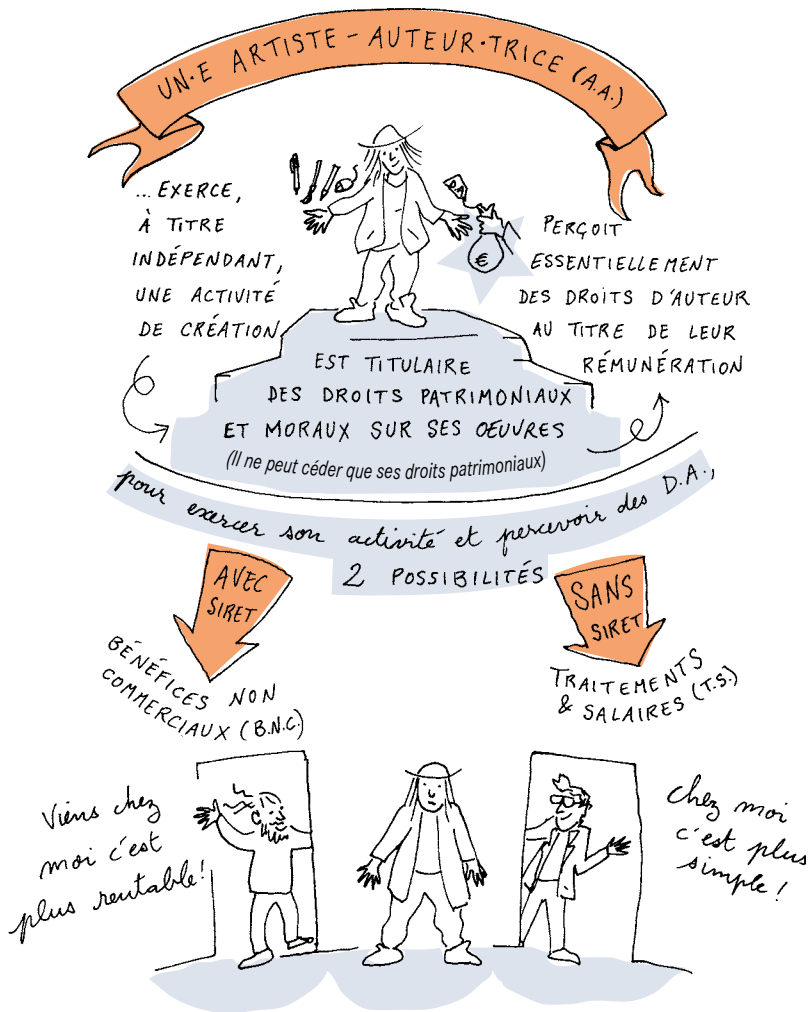 UN·E ARTISTE-AUTEUR·TRICE (A.A.)
... EXERCE,
À TITRE
INDÉPENDANT,
UNE ACTIVITÉ
DE CRÉATION
D.A
€
PERÇOIT
ESSENTIELLEMENT
DES DROITS D'AUTEUR
AU TITRE DE LEUR
RÉMUNÉRATION
EST TITULAIRE
DES DROITS PATRIMONIAUX
ET MORAUX SUR SES OEUVRES
(Il ne peut céder que ses droits patrimoniaux)
pour exercer son activité et percevoir des D.A.,
2 POSSIBILITÉS
AVEC
SIRET
BÉNÉFICES NON
COMMERCIAUX (B.N.C.)
SANS
SIRET
TRAITEMENTS
& SALAIRES (T.S.)
Viens chez
moi c'est
plus rentable!
chez moi
c'est plus
simple !